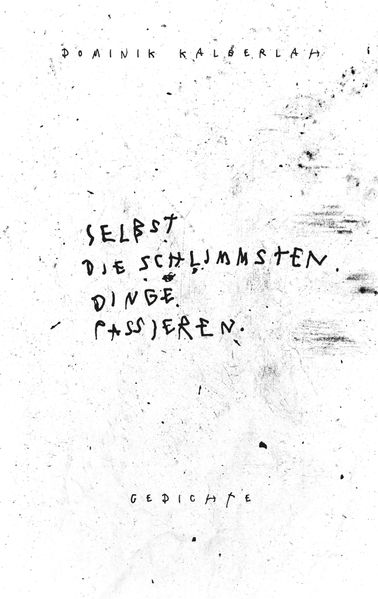 DOMINIK KALBERLAH
SELBST
DIE SCHLIMMSTEN.
DINGE.
PASSIEREN.
GEDICHTE